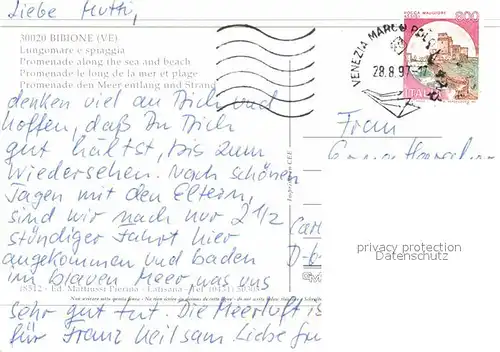 Liebe Mutti,
30020 BIBIONE (VE)
Lungomare e spiaggia
Promenade along the sea and beach
Promenade le long de la mer et plage
Promenade den Meer entlang und Strand
denken viel an Dich und
hoffen, daß Du Dich
gut hältst, bis zum
Wiedersehen. Nach schönen
Tagen mit den Eltern,
sind wir nach nur 2 1/2
stündiger Fahrt hier
angekommen und baden
im blauen Meer was uns
sehr gut tut. Die Meerluft is
für Franz heilsam. Liebe
ROCCA MAGGIORE
800
ITALIA
VENEZIA MARCO POLO
28.8.97
Frau
privacy protection
Datenschutz